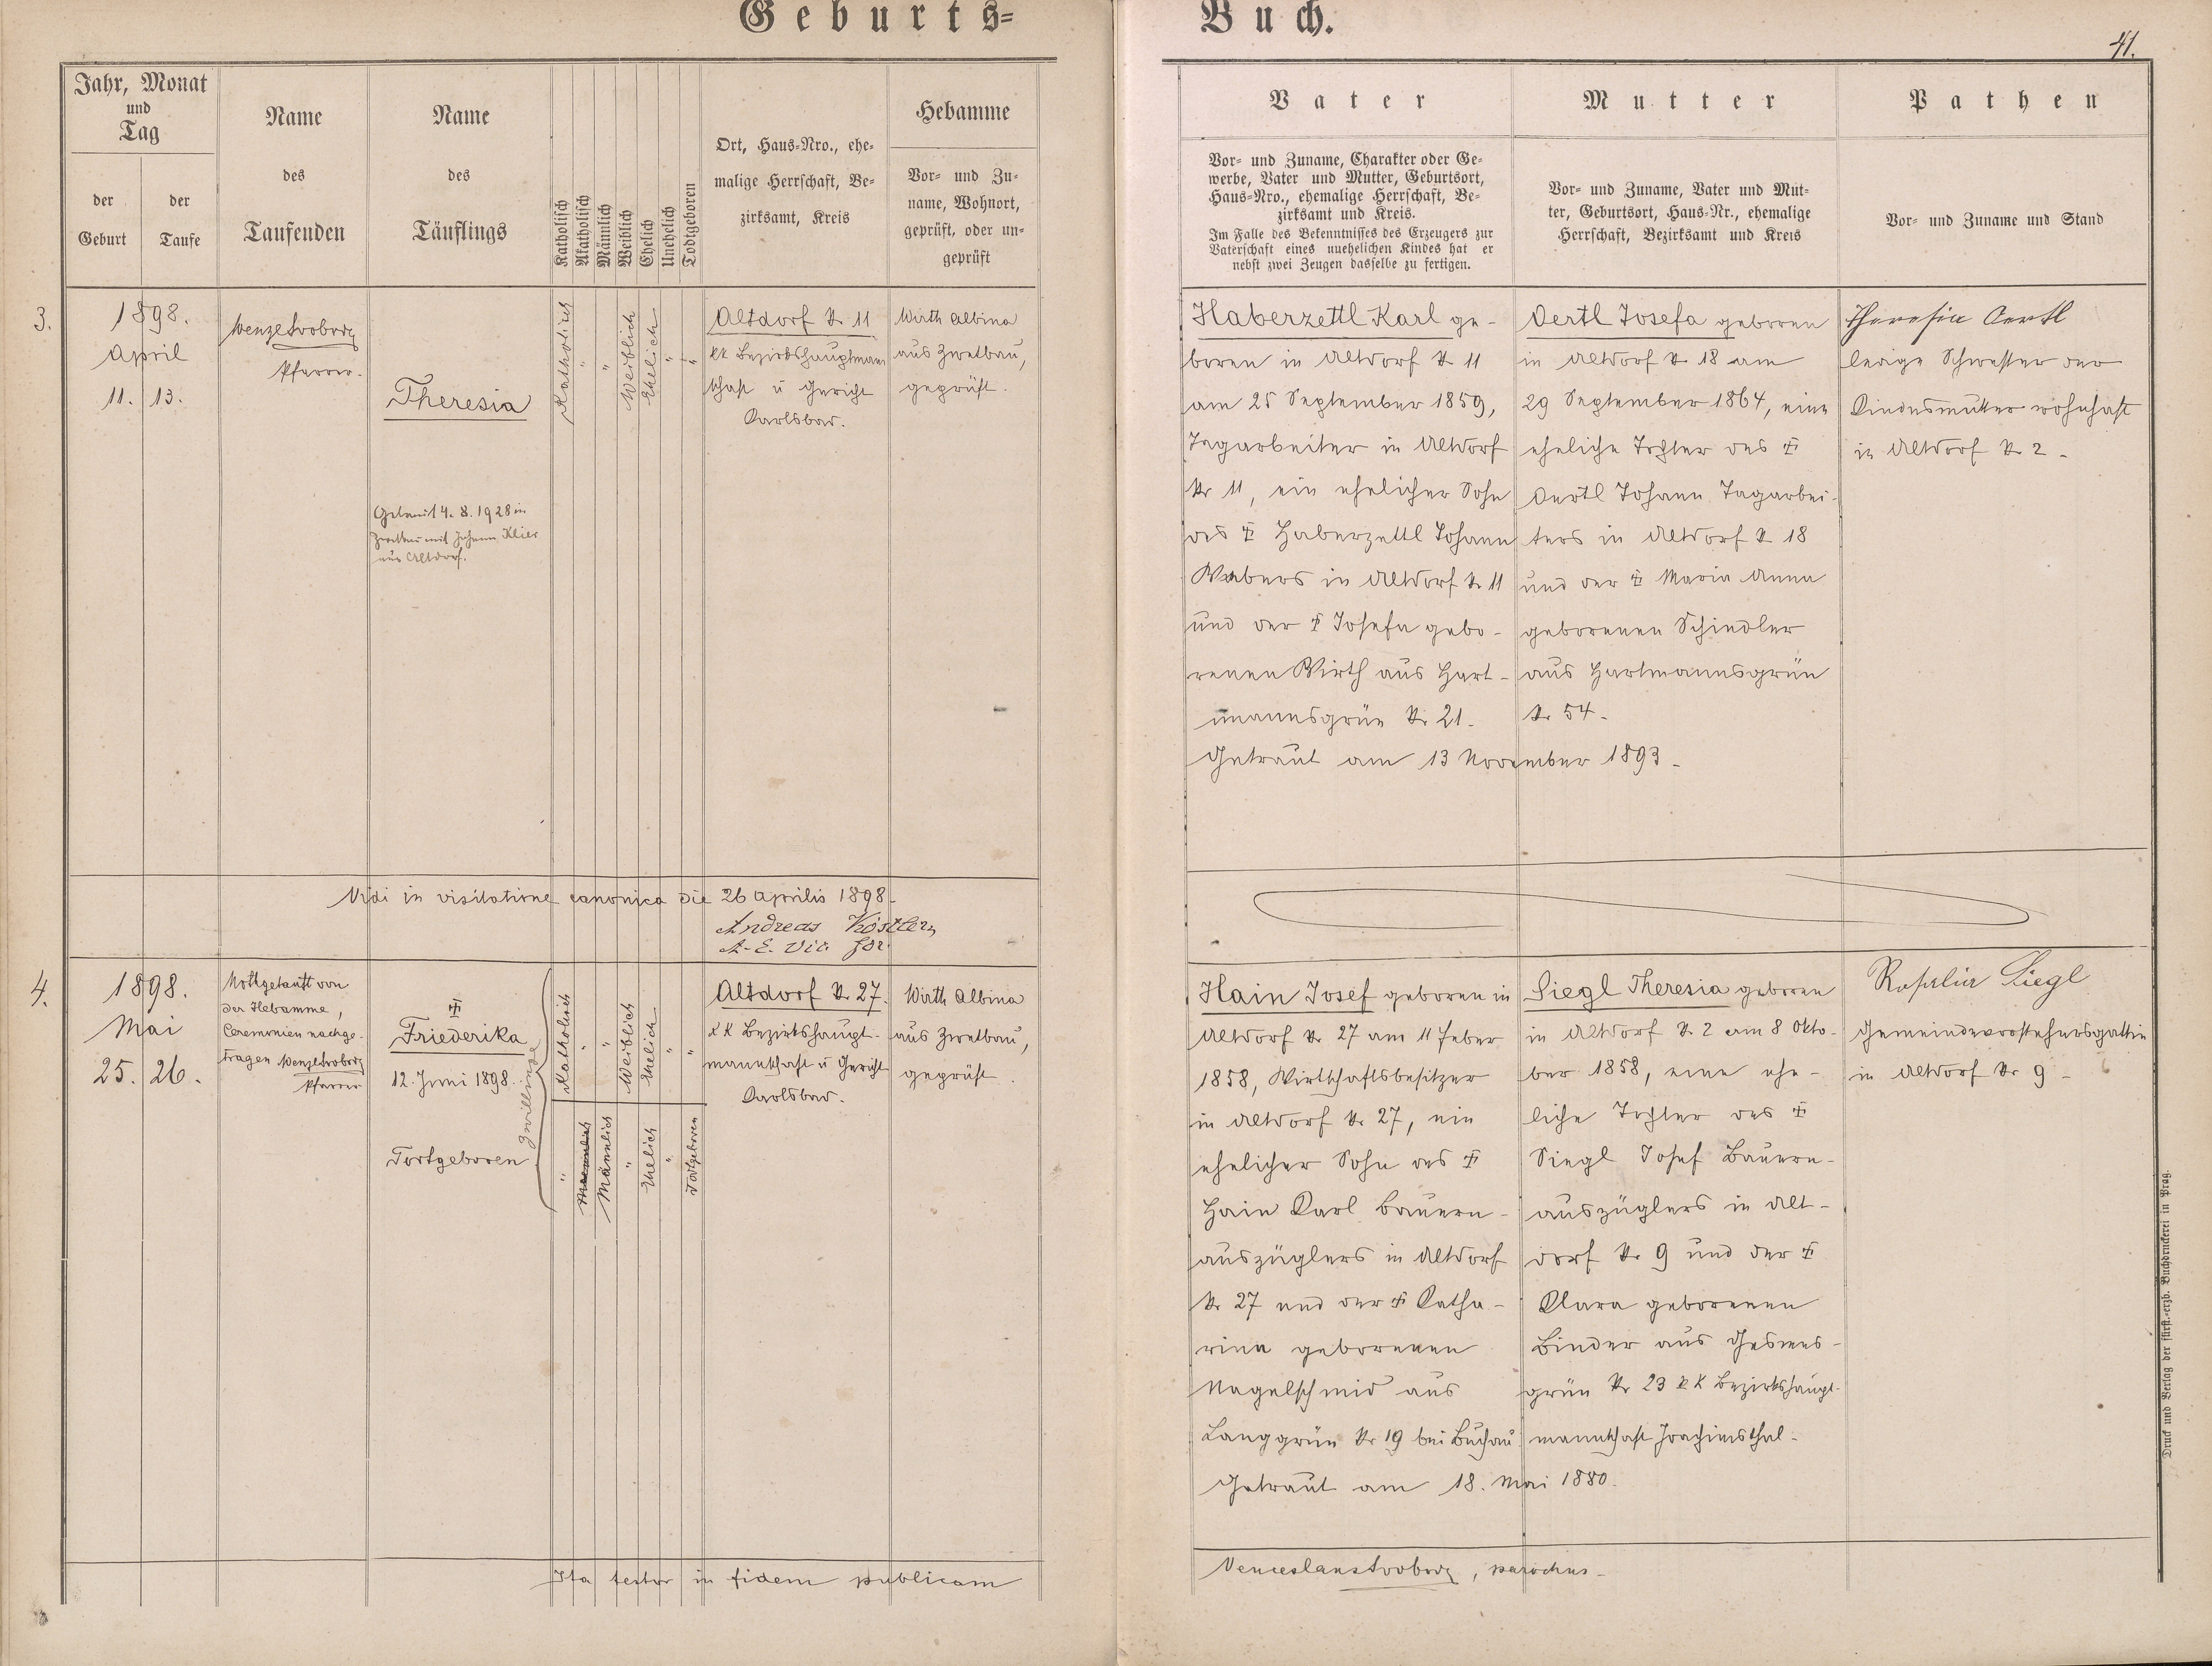 Geburts=
Buch.
41.
Jahr, Monat
und
Tag
der
Geburt
der
Taufe
Name
des
Taufenden
Name
des
Täuflings
Katholisch
Akatholisch
Männlich
Weiblich
Ehelich
Unehelich
Todtgeboren
Ort, Haus=Nro., ehe=
malige Herrschaft, Be=
zirksamt, Kreis
Hebamme
Vor= und Zu=
name, Wohnort,
geprüft, oder un=
geprüft
Vater
Vor= und Zuname, Charakter oder Ge=
werbe, Vater und Mutter, Geburtsort,
Haus=Nro., ehemalige Herrschaft, Be=
zirksamt und Kreis.
Im Falle des Bekenntnisses des Erzeugers zur
Vaterschaft eines unehelichen Kindes hat er
nebst zwei Zeugen dasselbe zu fertigen.
Mutter
Vor= und Zuname, Vater und Mut=
ter, Geburtsort, Haus=Nr., ehemalige
Herrschaft, Bezirksamt und Kreis
Pathen
Vor= und Zuname und Stand
3.
1898.
April
11. 13.
Wenzl Svoboda
Pfarrer.
Theresia
Getraut 14. 8. 1928 in
Zwetbau mit Johann Klier
aus Altdorf.
Katholisch
"
"
Weiblich
Ehelich
"
"
Altdorf Nr 11
kk Bezirkshauptmann
schaft u Gericht
Karlsbad.
Wirth Albina
aus Zwetbau,
geprüft.
Haberzettl Karl ge-
boren in Altdorf Nr 11
am 25 September 1859,
Tagarbeiter in Altdorf
Nr 11, ein ehelicher Sohn
des ‡ Haberzettl Johann
Webers in Altdorf Nr 11
und der ‡ Josefa gebo-
renen Wirth aus Hart-
mannsgrün Nr 21.
Getraut am 13 November 1893.
Oertl Josefa geboren
in Altdorf Nr 18 am
29 September 1864, eine
eheliche Tochter des ‡
Oertl Johann Tagarbei-
ters in Altdorf Nr 18
und der ‡ Maria Anna
geborenen Schindler
aus Hartmannsgrün
Nr 54.
Theresia Oertl
ledige Schwester der
Kindesmutter wohnhaft
in Altdorf Nr 2.
Vidi in visitatione canonica die 26 Aprilis 1898.
Andreas Köstler,
A. E. Vic. for.
4.
1898.
Mai
25. 26.
Nottgetauft von
der Hebamme,
Ceremonien nachge-
tragen Wenzl Svoboda
Pfarrer
‡
Friederika
12. Juni 1898.
Todtgeboren
Zwillinge
Katholisch
"
"
Weiblich
Ehelich
"
"
"
Männlich
Männlich
"
Ehelich
"
Todtgeboren
Altdorf Nr 27.
kk Bezirkshaupt-
mannschaft u Gericht
Karlsbad.
Wirth Albina
aus Zwetbau,
geprüft.
Hain Josef geboren in
Altdorf Nr 27 am 11 Feber
1858, Wirtschaftsbesitzer
in Altdorf Nr 27, ein
ehelicher Sohn des ‡
Hain Karl Bauern-
auszüglers in Altdorf
Nr 27 und der ‡ Katha-
rina geborenen
Nagelschmid aus
Langgrün Nr 19 bei Buchau
Getraut am 18. Mai 1880.
Siegl Theresia geboren
in Altdorf Nr 2 am 8 Okto-
ber 1858, eine ehe-
liche Tochter des ‡
Siegl Josef Bauern-
auszüglers in Alt-
dorf Nr 9 und der ‡
Klara geborenen
Binder aus Gesmes-
grün Nr 23 kk Bezirkshaupt-
mannschaft Joachimsthal.
Rosalia Siegl
Gemeindevorstehersgattin
in Altdorf Nr 9.
Ita testor in fidem publicam
Venceslaus Svoboda, parochus.
Druck und Verlag der fürst.-erzb. Buchdruckerei in Prag.